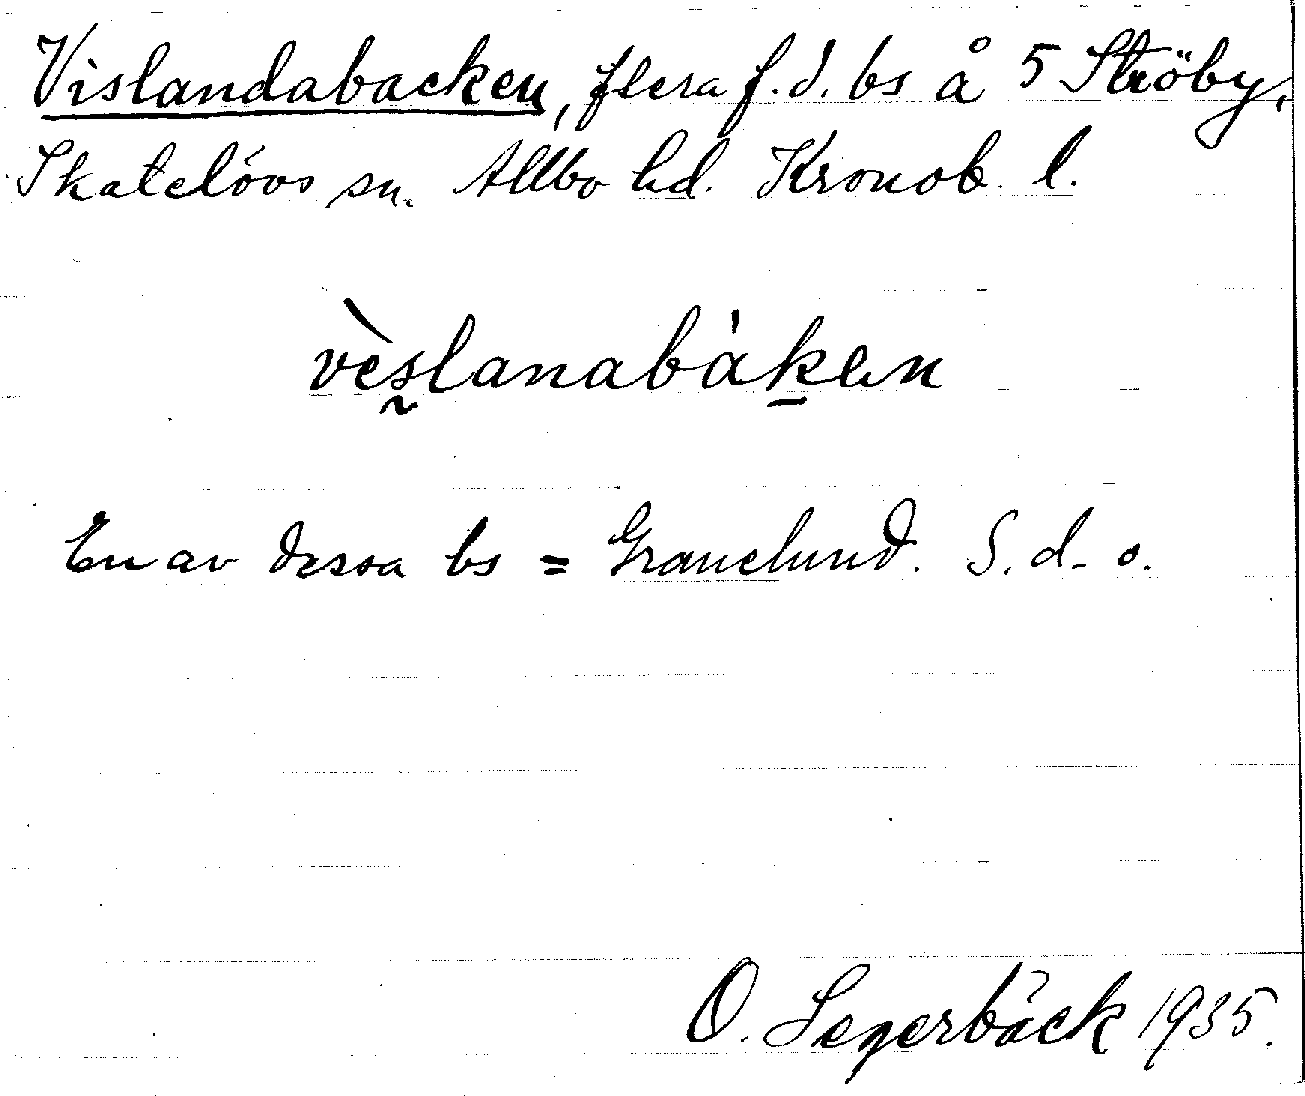 Vislandabacken, flera f.d. bs å 5 Ströby,
Skatelövs sn. Allbo hd. Kronob. l.
vèslanabàken
En av dessa bs = Granelund. S. d. o.
O. Segerbäck 1935.